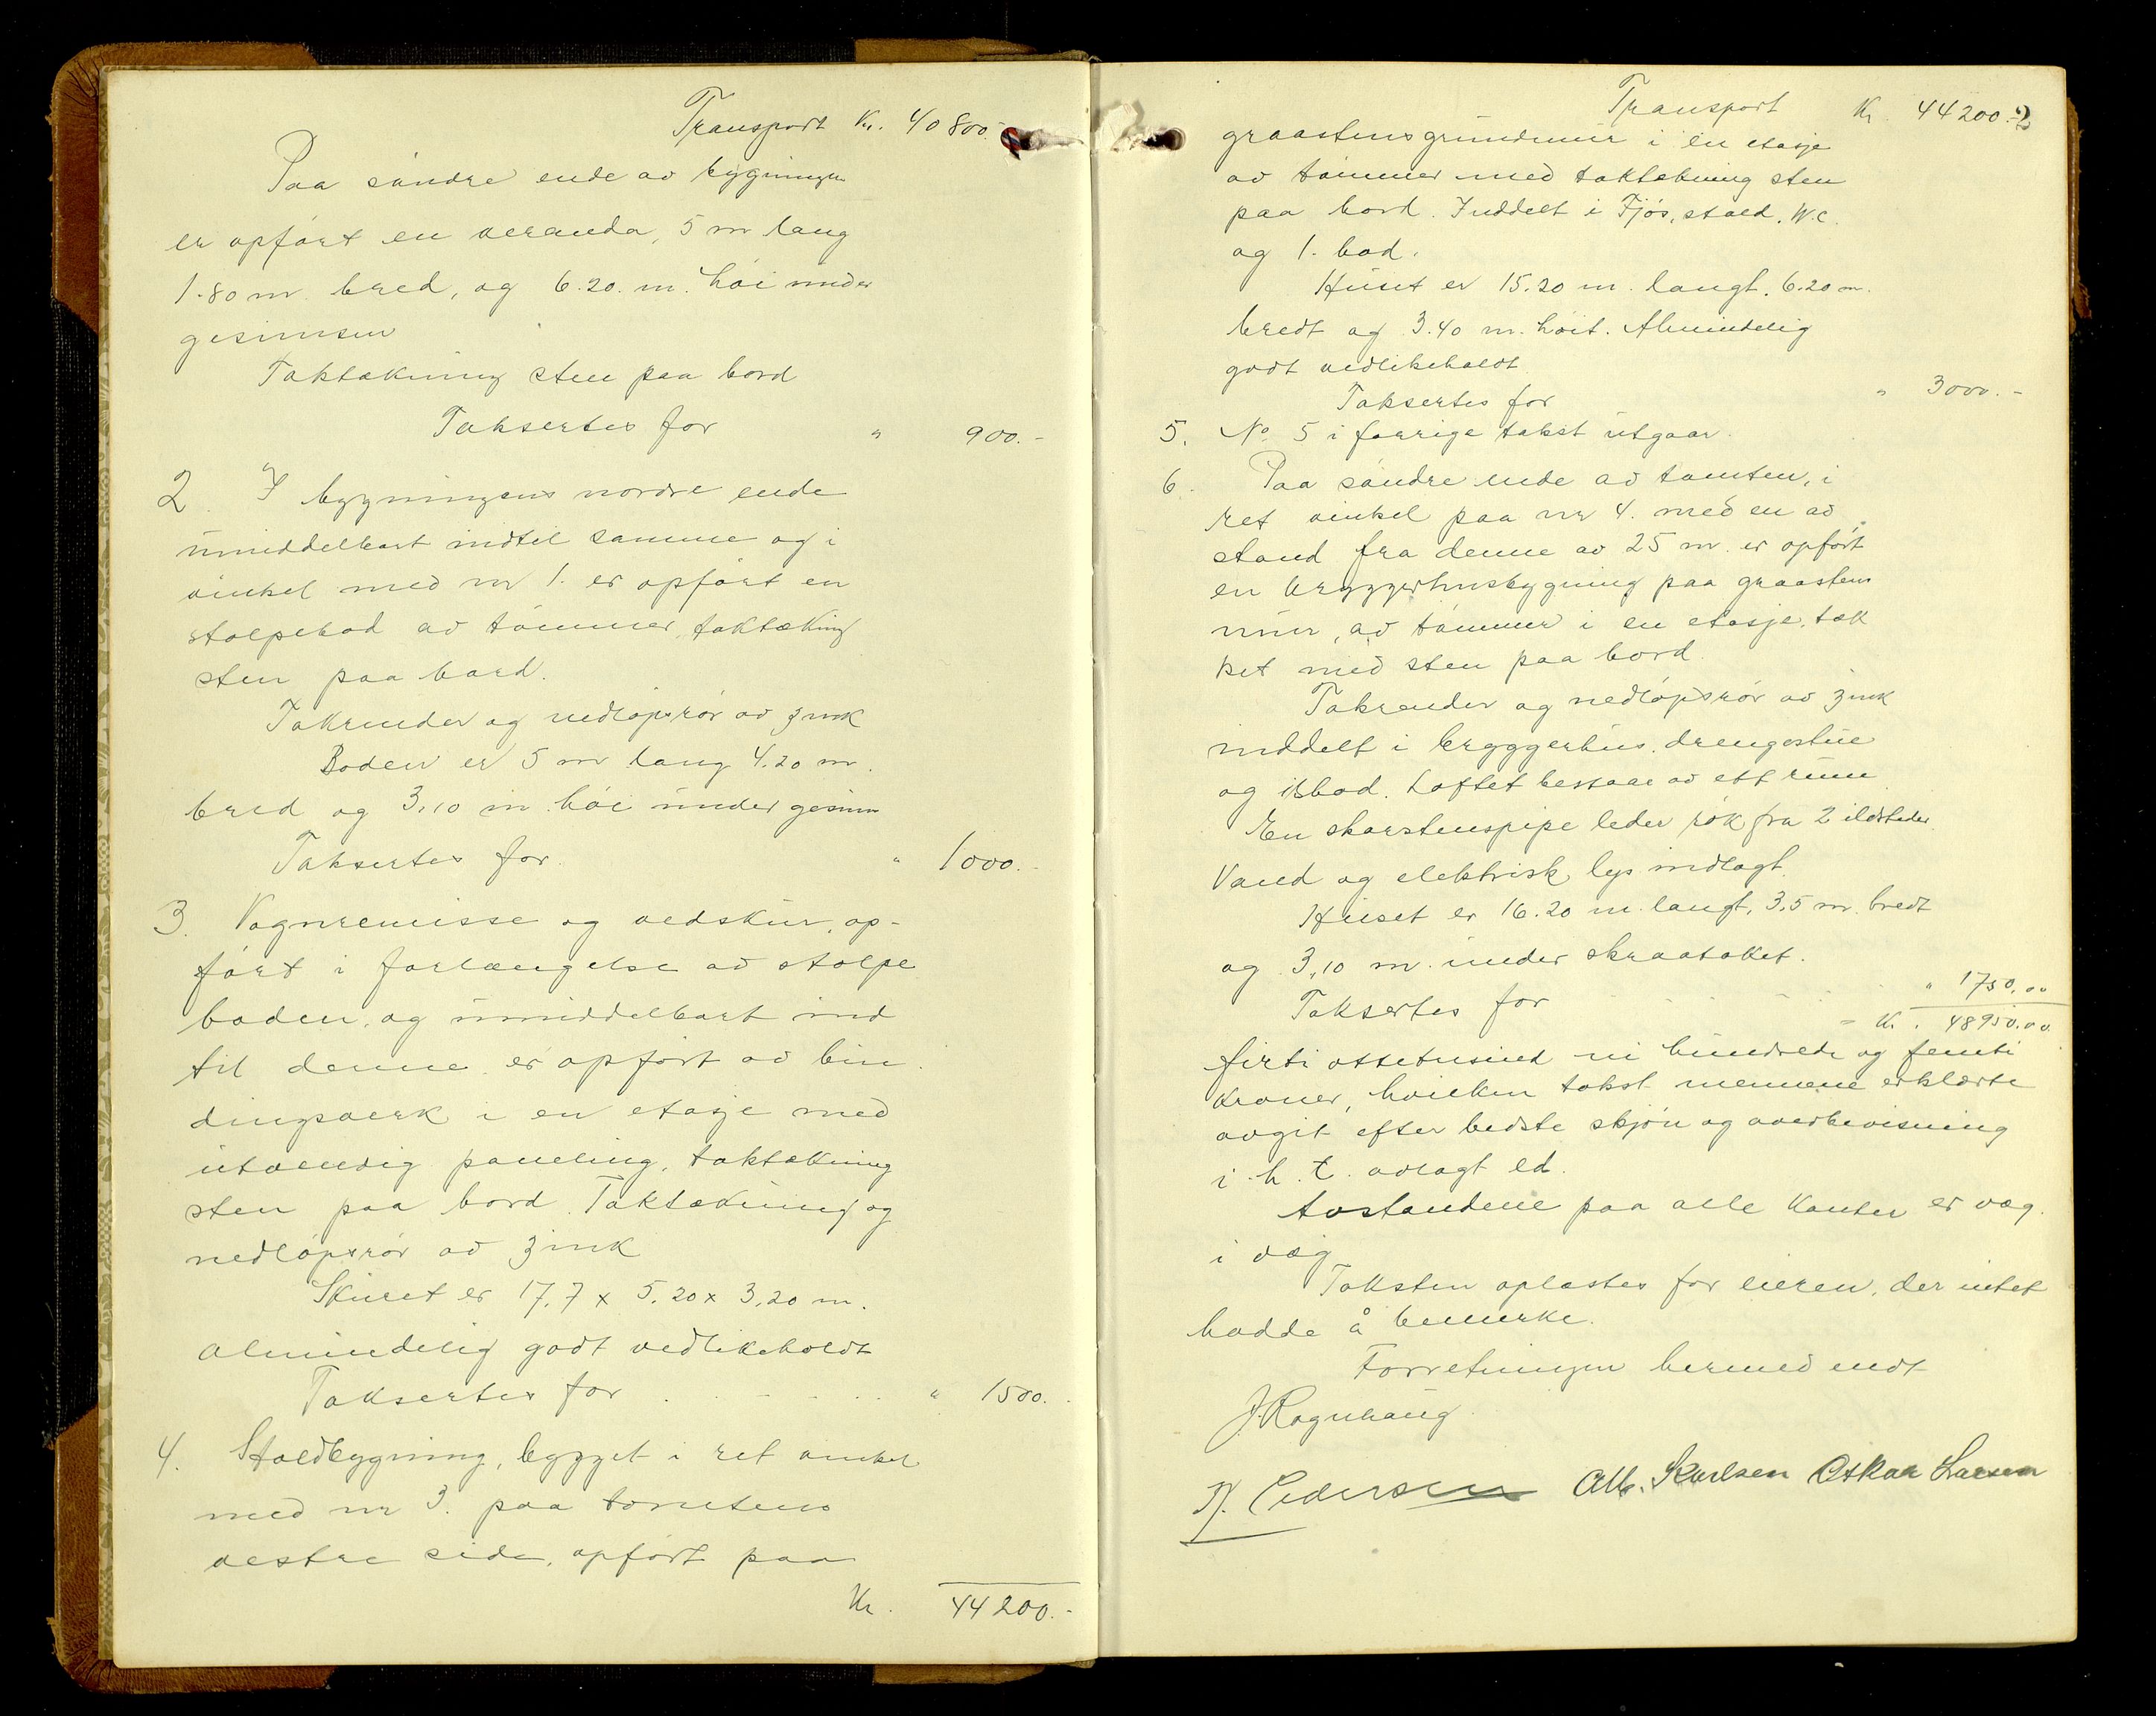 Transport Kr. 40800.-
Paa søndre ende av bygningen
er opført en veranda, 5 m lang
1.80 m. bred, og 6.20. m. høi under
gesimsen
Taktækning sten paa bord
Taksertes for " 900.-
2. I bygningens nordre ende
umiddelbart indtil samme og i
vinkel med nr 1. er opført en
stolpebod av tømmer, taktækning
sten paa bord.
Takrender og nedløpsrør av zink
Boden er 5 m lang 4.20 m.
bred og 3.10 m. høi under gesims
Taksertes for " 1000.-
3. Vognremisse og vedskur, op-
ført i forlængelse av stolpe
boden, og umiddelbart ind
til denne er opført av bin
dingsverk i en etasje med
utvendig paneling, taktækning
sten paa bord. Taktækning og
nedløpsrør av zink
Skuret er 17.7 x 5.20 x 3.20 m.
Almindelig godt vedlikeholdt
Taksertes for " 1500.
4. Staldbygning, bygget i ret vinkel
med nr 3. paa tomtens
vestre side, opført paa
Kr. 44200.-
Transport Kr. 44200.-
2
graastensgrundmur i en etasje
av tømmer med taktekning sten
paa bord. Inddelt i Fjøs, stald, W.c.
og 1. bod.
Huset er 15.20 m. langt. 6.20 m.
bredt og 3.40 m. høit. Almindelig
godt vedlikeholdt
Taksertes for " 3000.-
5. No 5 i forrige takst utgaar.
6. Paa søndre ende av tomten, i
ret vinkel paa nr 4. med en av
stand fra denne av 25 m. er opført
en bryggerhusbygning paa graastens
mur, av tømmer i en etasje, tæk
ket med sten paa bord.
Takrender og nedløpsrør av zink
inddelt i bryggerhus, drengestue
og isbod. Loftet bestaar av ett rum
En skorstenspipe leder røk fra 2 ildsteder
Vand og elektrisk lys indlagt.
Huset er 16.20 m. langt, 3.5 m. bredt
og 3.10 m. under skraataket.
Taksertes for " 1750.00
= Kr. 48950.00
førti ottetusind ni hundrede og femti
kroner, hvilken takst mennene erklærte
avgit efter bedste skjøn og overbevisning
i. h. t. avlagt ed.
Avstandene paa alle kanter er væg
i væg
Taksten oplæstes for eieren, der intet
hadde å bemerke.
Forretningen hermed endt
J. Rognhaug
N. Pedersen Alb. Karlsen Oskar Larsen